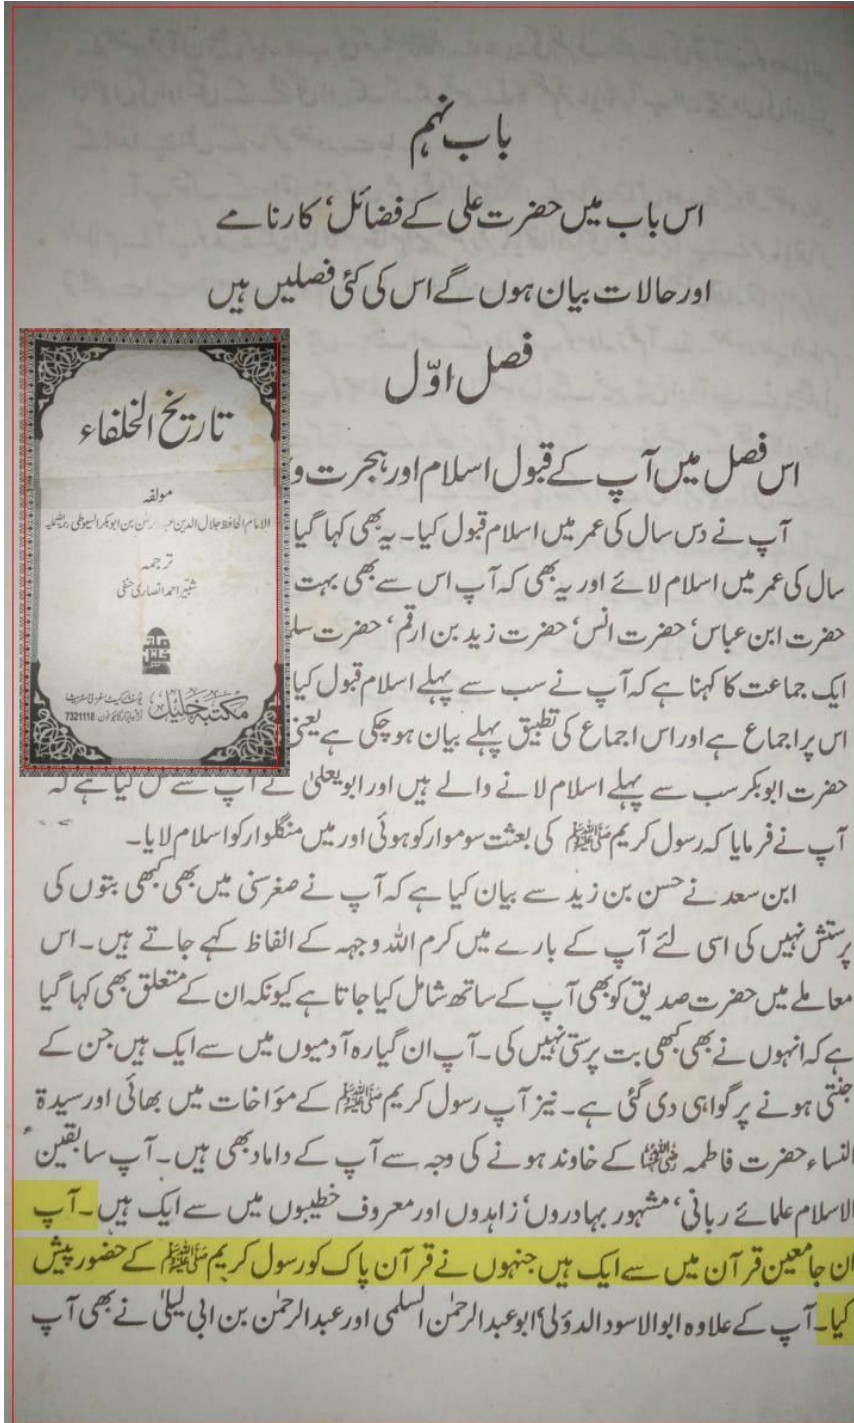 باب نہم
اس باب میں حضرت علی کے فضائل‘ کارنامے
اور حالات بیان ہوں گے اس کی کئی فصلیں ہیں
فصل اوّل
اس فصل میں آپ کے قبول اسلام اور ہجرت و
آپ نے دس سال کی عمر میں اسلام قبول کیا۔ یہ بھی کہا گیا
سال کی عمر میں اسلام لائے اور یہ بھی کہ آپ اس سے بھی بہت
حضرت ابن عباس‘ حضرت انس‘ حضرت زید بن ارقم‘ حضرت
ایک جماعت کا کہنا ہے کہ آپ نے سب سے پہلے اسلام قبول کیا
اس پر اجماع ہے اور اس اجماع کی تطبیق پہلے بیان ہو چکی ہے یعنی
حضرت ابوبکر سب سے پہلے اسلام لانے والے ہیں اور ابویعلیٰ نے آپ سے کیا ہے کہ
آپ نے فرمایا کہ رسول کریم ﷺ کی بعثت سوموار کو ہوئی اور میں منگلوار کو اسلام لایا۔
ابن سعد نے حسن بن زید سے بیان کیا ہے کہ آپ نے صغرسنی میں بھی کبھی بتوں کی
پرستش نہیں کی اسی لئے آپ کے بارے میں کرم اللہ وجہہ کے الفاظ کہے جاتے ہیں۔ اس
معاملے میں حضرت صدیق کو بھی آپ کے ساتھ شامل کیا جاتا ہے کیونکہ ان کے متعلق بھی کہا گیا
ہے کہ انہوں نے بھی کبھی بت پرستی نہیں کی۔ آپ ان گیارہ آدمیوں میں سے ایک ہیں جن کے
جنتی ہونے پر گواہی دی گئی ہے۔ نیز آپ رسول کریم ﷺ کے مؤاخات میں بھائی اور سیدۃ
النساء حضرت فاطمہ رضی اللہ عنہا کے خاوند ہونے کی وجہ سے آپ کے داماد بھی ہیں۔ آپ سابقین
الاسلام علمائے ربانی‘ مشہور بہادروں‘ زاہدوں اور معروف خطیبوں میں سے ایک ہیں۔ آپ
ان جامعین قرآن میں سے ایک ہیں جنہوں نے قرآن پاک کو رسول کریم ﷺ کے حضور پیش
کیا۔ آپ کے علاوہ ابوالاسود الدؤلی‘ ابوعبدالرحمٰن السلمی اور عبدالرحمٰن بن ابی لیلیٰ نے بھی آپ
تاریخ الخلفاء
مولفہ
الامام الحافظ جلال الدین بن ابوبکر السیوطی
ترجمہ
شبیر احمد انصاری حنفی
مکتبہ خلیل
7321118